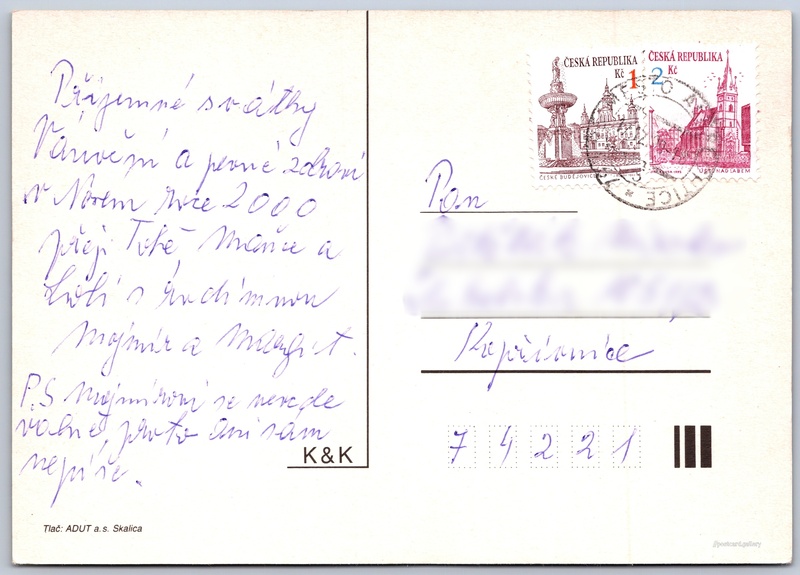 Příjemné svátky
Vánoční a pevné zdraví
v Novém roce 2000
přeji Tobě, Mance a
s rodinnou
Mojmír a Margit.
P.S Mojmírovi se nevede
valně, proto ani sám
nepíše.
K&K
Tlač: ADUT a.s. Skalica
ČESKÁ REPUBLIKA
Kč 1
ČESKÉ BUDĚJOVICE
ČESKÁ REPUBLIKA
2 Kč
ÚSTÍ NAD LABEM
Pan
Kopřivnice
74221